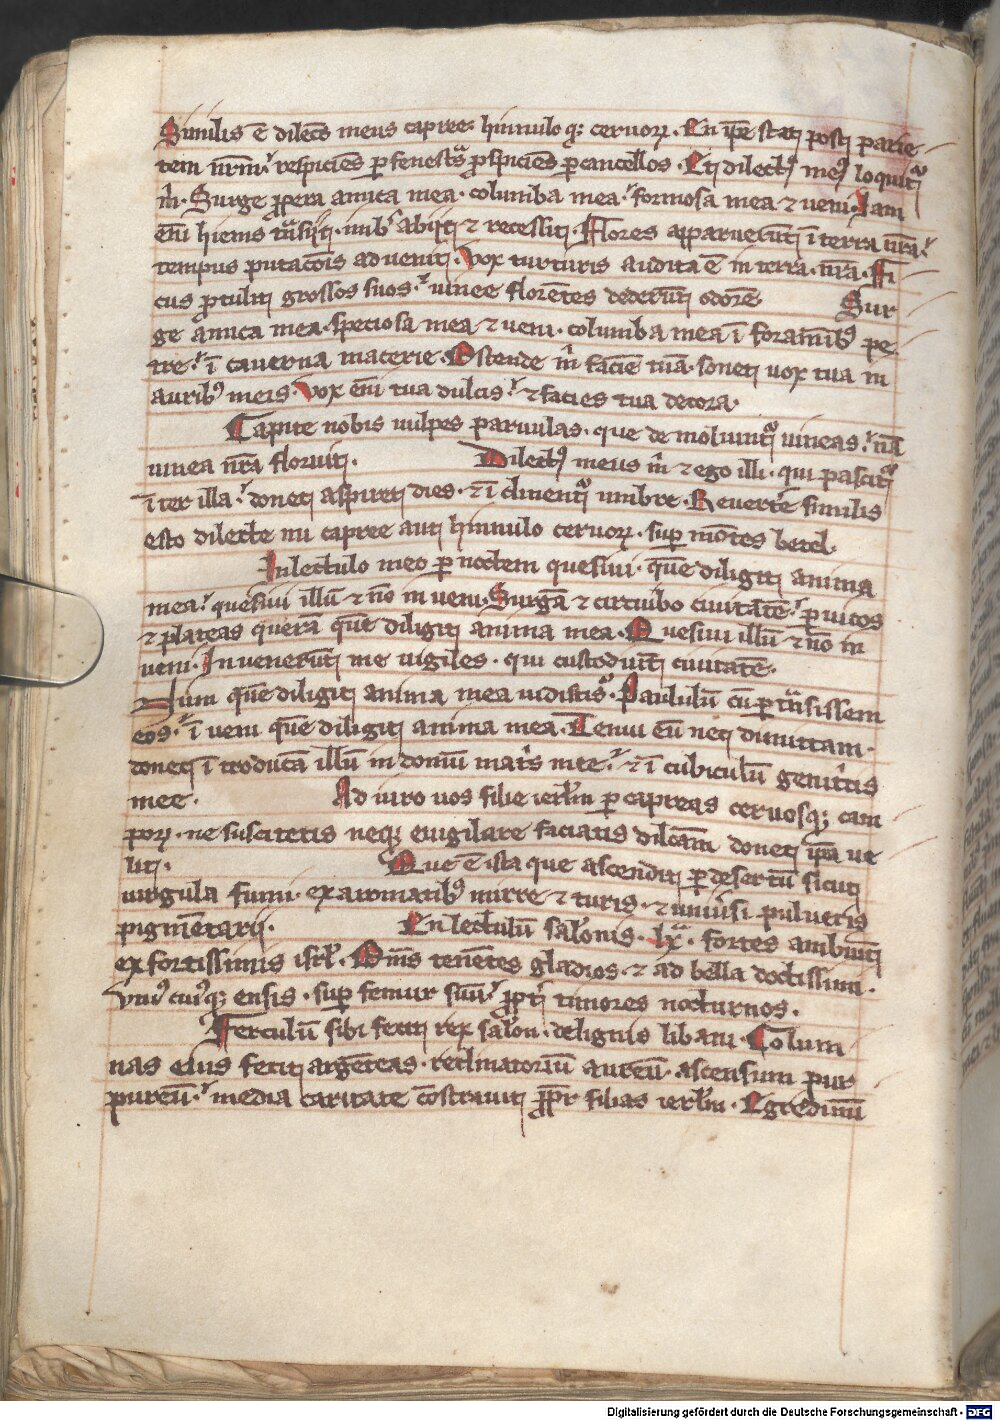 Similis ē dilecꝰ meus capree. hinnulo qꝫ ceruoꝝ. En ip̄e stat post parie
tem nr̄m. respiciēs ꝑ fenestᵃs ꝓspiciēs ꝑ cancellos. Et dilectꝰ meꝰ loquit᷑
m̄. Surge ꝓpera amica mea. columba mea. formosa mea ⁊ ueni. Iam
eni hiems tᵃsijt. imbꝰ abijt ⁊ recessit. Flores apparuerūt ī terra nr̄a.
tempus putacōis aduenit. Vox turturis audita ē in terra nr̄a. Fi
cus ꝓtulit grossos suos. uinee florētes dederūt odorē. Sur
ge amica mea. speciosa mea ⁊ ueni. columba mea ī foraminibꝰ pe
tre. ī cauerna macerie. Ostende m̄ faciē tuā. sonet uox tua in
auribꝰ meis. Vox eni tua dulcis. ⁊ facies tua decora.
Capite nobis uulpes paruulas. que demoliunt᷑ uineas. nā
uinea nr̄a floruit. Dilectꝰ meus m̄ ⁊ ego illi. qui pascit᷑
īter lilia. donec aspiret dies. ⁊ īclinent᷑ umbre. Reuert̄e similis
esto dilecte mi capree aut hinnulo ceruoꝝ. sup̄ mōtes betel.
In lectulo meo ꝑ noctem quesiui. quē diligit anima
mea. quesiui illū ⁊ nō inueni. Surgā ⁊ circuibo ciuitatē. ꝑ uicos
⁊ plateas querā quē diligit anima mea. Quesiui illū ⁊ nō in
ueni. Inuenerūt me uigiles. qui custodiūt ciuitatē.
Num quē diligit anima mea uidistis. Paululū cū ꝑtᵃnsissem
eos. īueni quē diligit anima mea. Tenui eū nec dimittam.
donec ītroducā illū in domū matr̄s mee. ⁊ ī cubiculū genitⁱcis
mee. Adiuro uos filie ierl̄m ꝑ capreas ceruosqꝫ cam
poꝝ. ne suscitetis neqꝫ euigilare faciatis dilcām donec ip̄a ue
lit. Que ē ista que ascendit ꝑ desertū sicut
uirgula fumi. ex aromatibꝰ mirre ⁊ turis. ⁊ uniūsi pulueris
pigmētarij. En lectulū salōnis. lxᵃ. fortes ambiūt
ex fortissimis isrl̄. Om̄s tenētes gladios. ⁊ ad bella doctissimi.
Vniꝰcuiꝰqꝫ ensis. sup̄ femur suū. ꝓpt̄ timores nocturnos.
Ferculū sibi fecit rex salon. de lignis libani. Colum
nas eius fecit argēteas. reclinatoriū aureū. ascensum pur
pureū. media caritate cōstrauit ꝓpt̄ filias ierl̄m. Egredimi
Digitalisierung gefördert durch die Deutsche Forschungsgemeinschaft - DFG